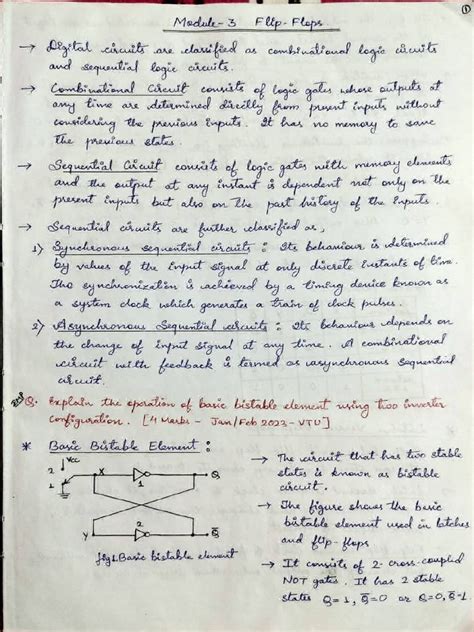 ①
Module-3 Flip-Flops.
→ Digital circuits are classified as combinational logic circuits
and sequential logic circuits.
→ Combinational Circuit consists of logic gates whose outputs at
any time are determined directly from present inputs without
considering the previous inputs. It has no memory to save
the previous states.
→ Sequential Circuit consists of logic gates with memory elements
and the output at any instant is dependent not only on the
present inputs but also on the past history of the inputs.
→ Sequential circuits are further classified as,
1) Synchronous sequential circuits: Its behaviour is determined
by values of the input signal at only discrete instants of time.
The synchronization is achieved by a timing device known as
a system clock which generates a train of clock pulses.
2) Asynchronous Sequential circuits: Its behaviour depends on
the change of input signal at any time. A combinational
circuit with feedback is termed as asynchronous sequential
circuit.
Q. Explain the operation of basic bistable element using two inverter
configuration. [4 Marks - Jan/Feb 2023 - VTU]
* Basic Bistable Element:
Vcc
2
1
X
1
Q
2
Y
Q̅
fig1. Basic bistable element
→ The circuit that has two stable
states is known as bistable
circuit.
→ The figure shows the basic
bistable element used in latches
and flip-flops
→ It consists of 2-cross-coupled
NOT gates. It has 2 stable
states Q=1, Q̅=0 or Q=0, Q̅=1.